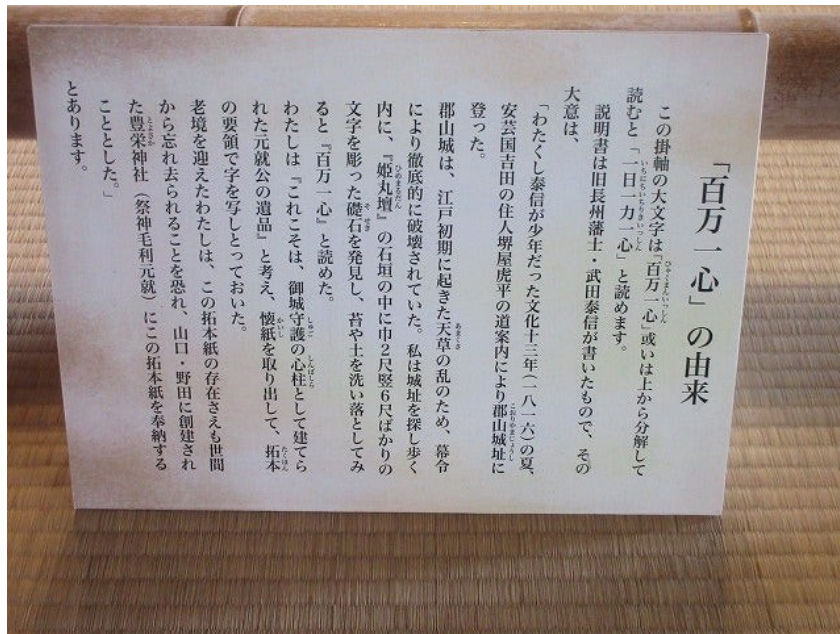 「百万一心」の由来
この掛軸の大文字は「百万一心」或いは上から分解して
読むと「一日一力一心」と読めます。
説明書は旧長州藩士・武田泰信が書いたもので、その
大意は、
「わたくし泰信が少年だった文化十三年(一八一六)の夏、
安芸国吉田の住人堺屋虎平の道案内により郡山城址に
登った。
郡山城は、江戸初期に起きた天草の乱のため、幕令
により徹底的に破壊されていた。私は城址を探し歩く
内に、『姫丸壇』の石垣の中に巾2尺竪6尺ばかりの
文字を彫った礎石を発見し、苔や土を洗い落としてみ
ると『百万一心』と読めた。
わたしは『これこそは、御城守護の心柱として建てら
れた元就公の遺品』と考え、懐紙を取り出して、拓本
の要領で字を写しとっておいた。
老境を迎えたわたしは、この拓本紙の存在さえも世間
から忘れ去られることを恐れ、山口・野田に創建され
た豊栄神社(祭神毛利元就)にこの拓本紙を奉納する
こととした。」
とあります。